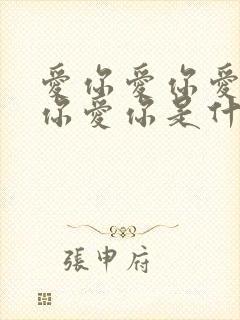 愛你愛你愛
你愛你是什
張申府